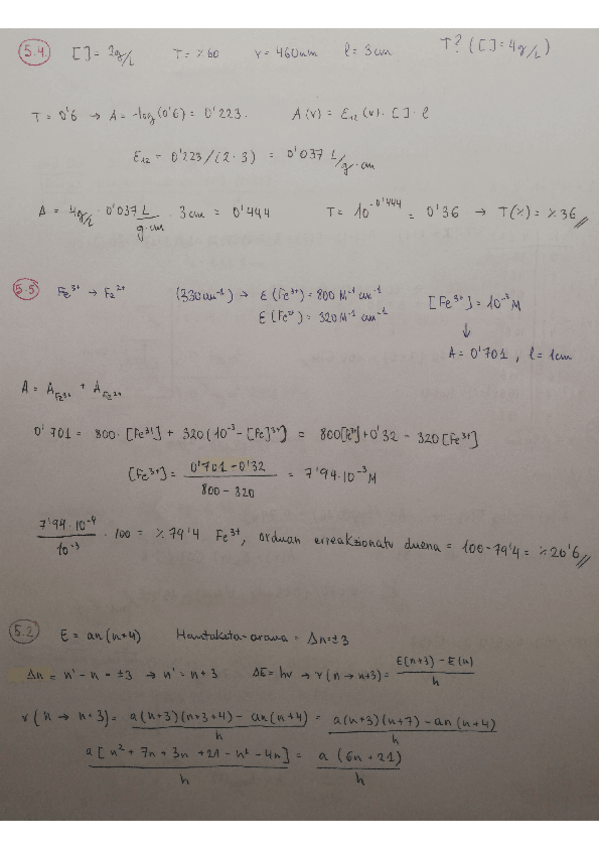 5.4 [ ] = 2g/L T = %60 ν = 460nm l = 3cm T? ([ ] = 4g/L)
T = 0'6 → A = -log(0'6) = 0'223. A(ν) = ε12(ν) · [ ] · l
ε12 = 0'223/(2·3) = 0'037 L/g·cm
A = 4g/L · 0'037 L/g·cm · 3cm = 0'444 T = 10^-0'444 = 0'36 → T(%) = %36 //
5.5 Fe3+ → Fe2+ (330cm-1) → ε(Fe3+) = 800 M-1 cm-1 [Fe3+] = 10^-3 M
ε(Fe2+) = 320 M-1 cm-1 ↓
A = 0'701, l = 1cm
A = A Fe3+ + A Fe2+
0'701 = 800·[Fe3+] + 320(10^-3 - [Fe]3+) = 800[Fe3+] + 0'32 - 320[Fe3+]
[Fe3+] = (0'701 - 0'32)/(800 - 320) = 7'94·10^-3 M
7'94·10^-4/10^-3 · 100 = %79'4 Fe3+, orduan erreakzionatu duena = 100-79'4 = %20'6 //
5.2 E = an(n+4) Hautaketa-araua = Δn=±3
Δn = n' - n = ±3 → n' = n+3 ΔE = hν → ν(n → n+3) = (E(n+3) - E(n))/h
ν(n → n+3) = (a(n+3)(n+3+4) - an(n+4))/h = (a(n+3)(n+7) - an(n+4))/h
a[n² + 7n + 3n + 21 - n² - 4n]/h = a(6n+21)/h